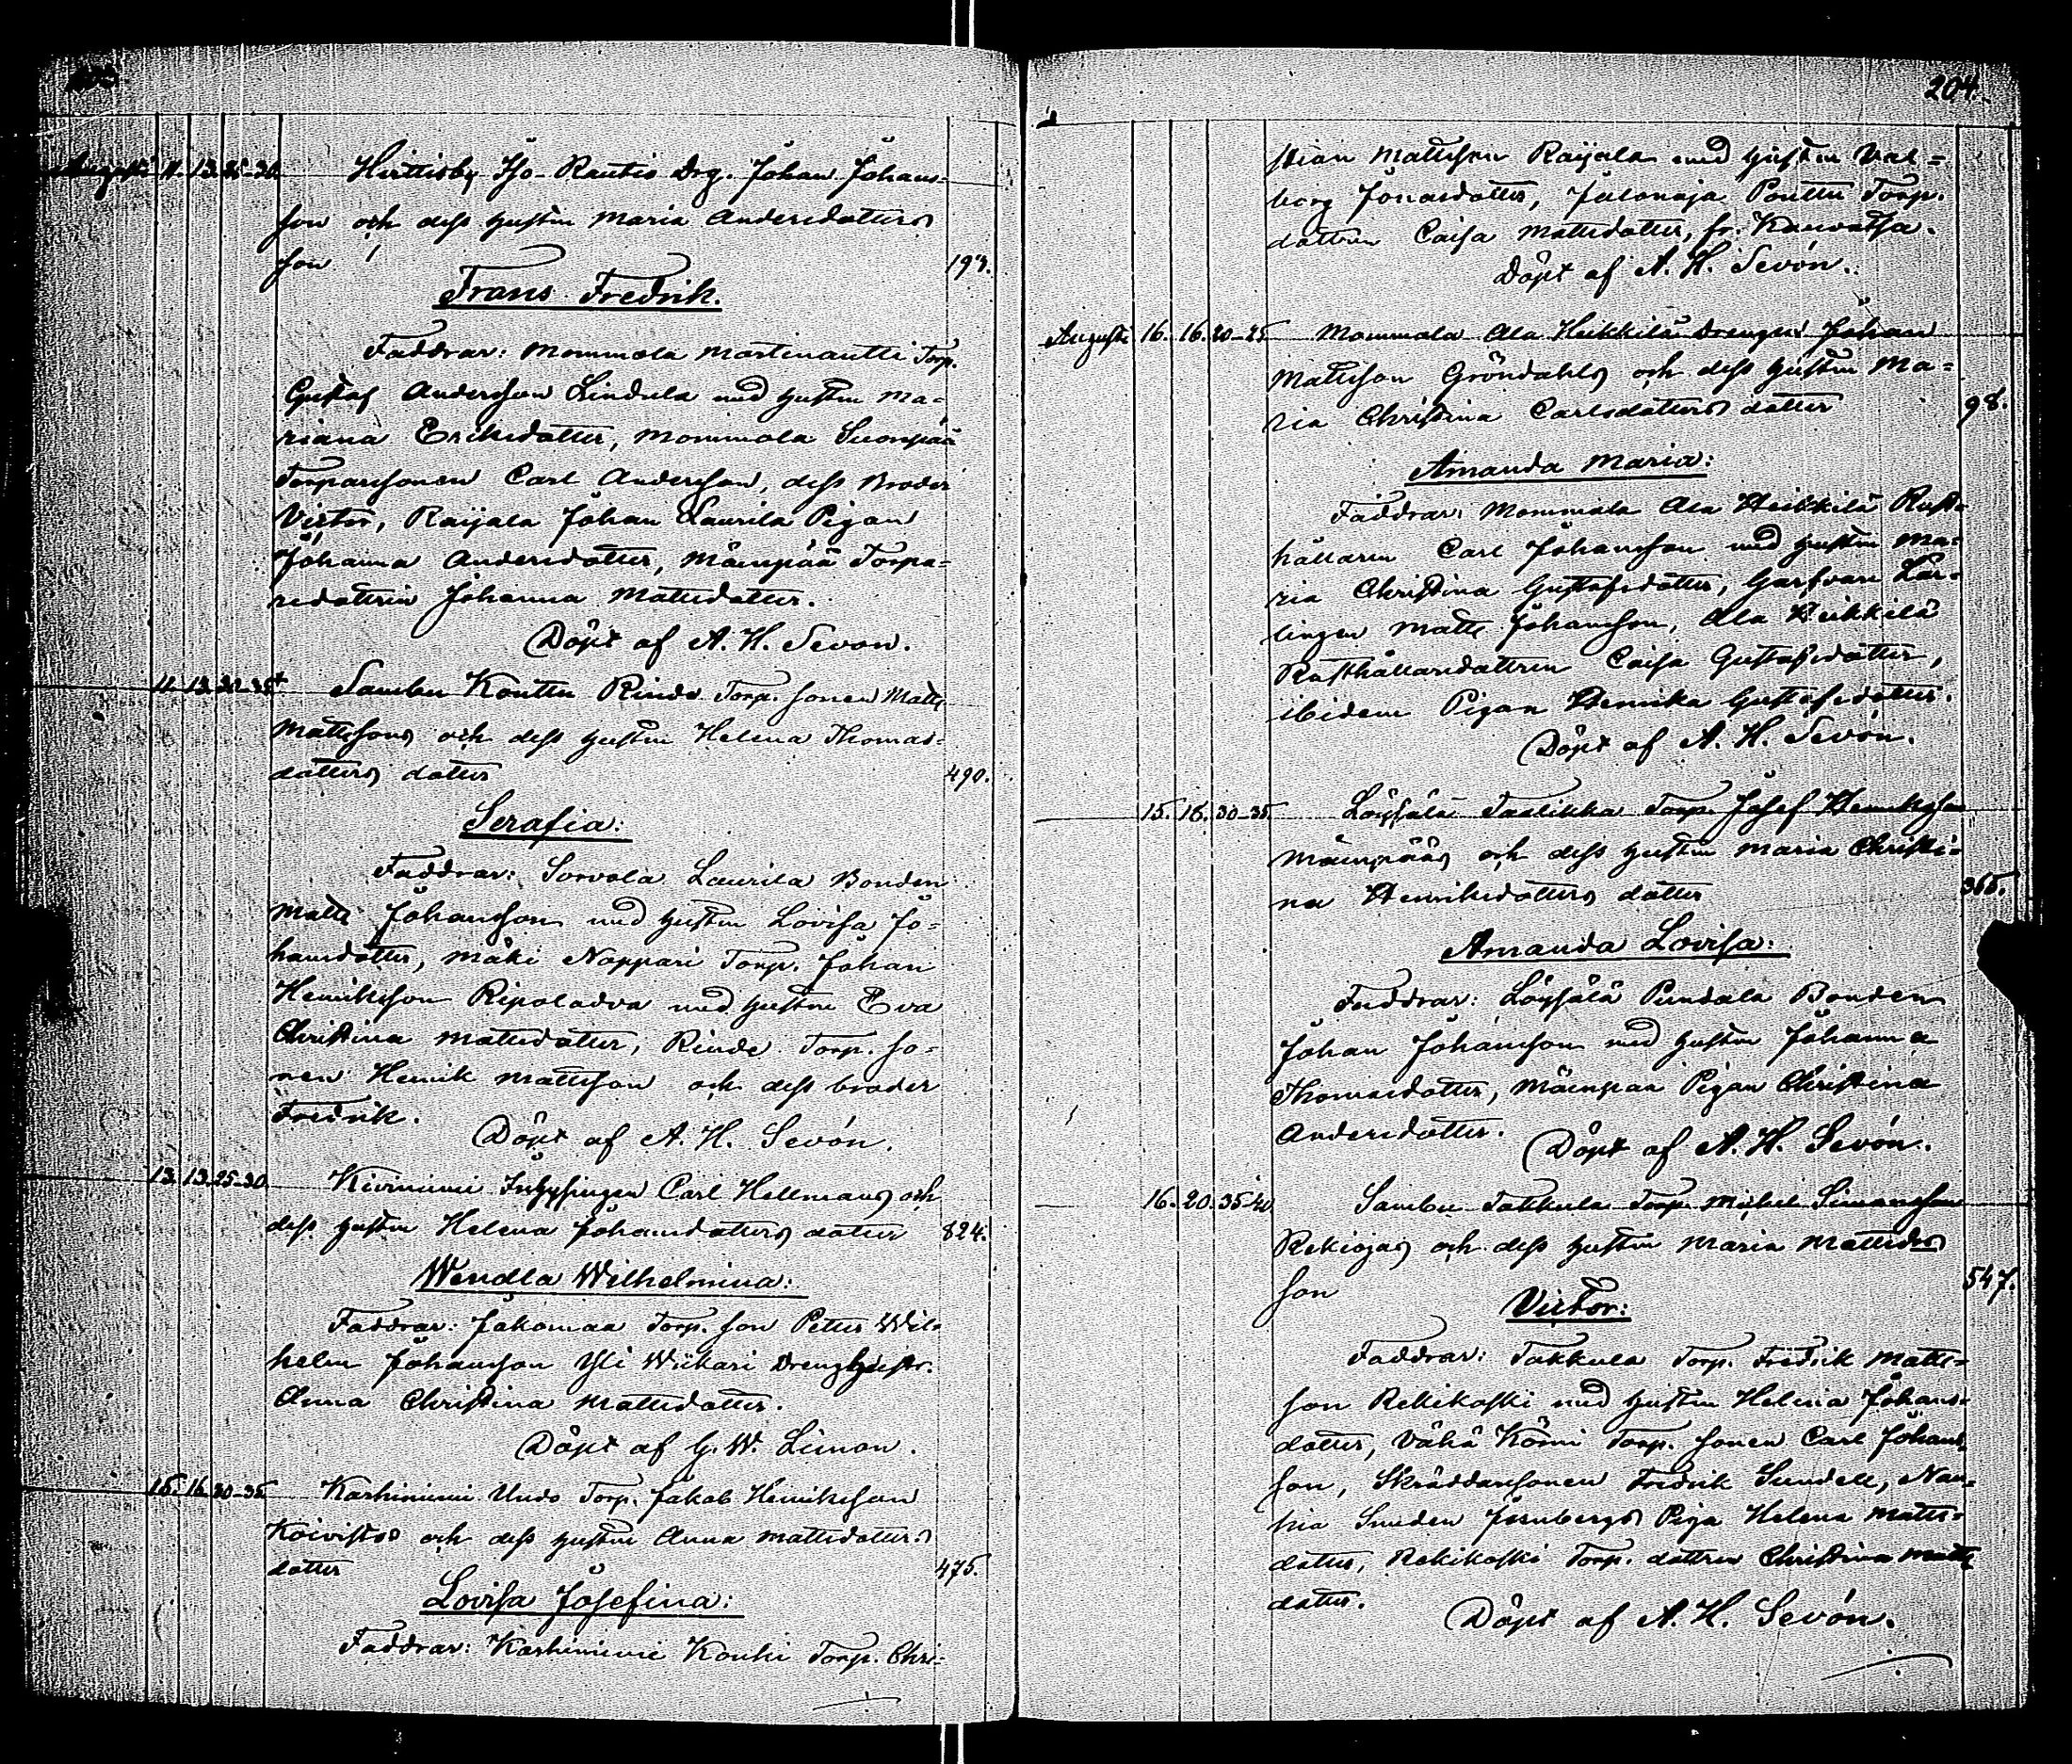 203.
Augusti 11. 13. 25-30. Hirttisby Iso-Rautio Drg. Johan Johans-
son och dess hustru Maria Andersdotters
son 193.
Frans Fredrik.
Faddrar: Mommola Martinantti Torp.
Gustaf Andersson Lindula med hustru Ma-
riana Eriksdotter, Mommola Suonpää
Torparesonen Carl Andersson, dess Broder
Victor, Raijala Johan Laurila Pigan
Johanna Andersdotter, Mäenpää Torpa-
redottren Johanna Mattsdotter.
Döpt af A. H. Sevon.
11. 13. 30-35 Sambu Konttu Rinde Torp. sonen Matts
Mattssons och dess hustru Helena Thomas-
dotters dotter 490.
Serafia:
Faddrar: Sorvola Laurila Bonden
Matts Johansson med hustru Lovisa Jo-
hansdotter, Mäki Noppari Torp. Johan
Henriksson Ripoladva med hustru Eva
Christina Mattsdotter, Rinde Torp. so-
nen Henrik Mattsson och dess broder
Fredrik.
Döpt af A. H. Sevón.
13. 13. 25-30. Kiviniemi Inhysingen Carl Hellmans och
dess hustru Helena Johansdotters dotter 824.
Wendla Wilhelmina:
Faddrar: Jokomaa Torp. son Petter Wil-
helm Johansson Yli Wiikari Drenghustr.
Anna Christina Mattsdotter.
Döpt af G. W. Limon.
15. 16. 30-35 Karhiniemi Undo Torp. Jakob Henriksson
Koivistos och dess hustru Anna Mattsdotters
dotter 475.
Lovisa Josefina:
Faddrar: Karhiniemi Kouhi Torp. Chri-
204.
stian Mattsson Raijala med hustru Val-
borg Jonasdotter, Pouttu Torp.
dottren Caisa Mattsdotter, fr. Kauvatsa.
Döpt af A. H. Sevón.
Augusti 16. 16. 20-25 Mommola Ala Heikkilä Drengen Johan
Mattsson Gröndahls och dess hustru Ma-
ria Christina Carlsdotters dotter 98.
Amanda Maria:
Faddrar: Mommola Ala Heikkilä Rust-
hållaren Carl Johansson med hustru Ma-
ria Christina Gustafsdotter, Garfvare Lär-
lingen Matts Johansson, Ala Heikkilä
Rusthållaredottren Caisa Gustafsdotter,
ibidem Pigan Henrika Gustafsdotter.
Döpt af A. H. Sevón.
15. 16. 30-35. Löysälä Taalikka Torp. Josef Henriksson
Mäenpääs och dess hustru Maria Christi-
na Henriksdotters dotter 365.
Amanda Lovisa:
Faddrar: Löysälä Pundala Bonden
Johan Johansson med hustru Johanna
Thomasdotter, Mäenpää Pigan Christina
Andersdotter.
Döpt af A. H. Sevón.
16. 20. 35-40 Sambu Takkula Torp. Michel Simonsson
Rekiojas och dess hustru Maria Mattsdrs
son 547.
Victor:
Faddrar: Takkula Torp. Fredrik Matts-
son Rekikoski med hustru Helena Johans-
dotter, Vähä Körni Torp. sonen Carl Johans-
son, Skräddaresonen Fredrik Sundell, Nan-
hia Smeden Jernbergs Piga Helena Matts-
dotter, Rekikoski Torp. dottren Christina Matts
dotter.
Döpt af A. H. Sevón.